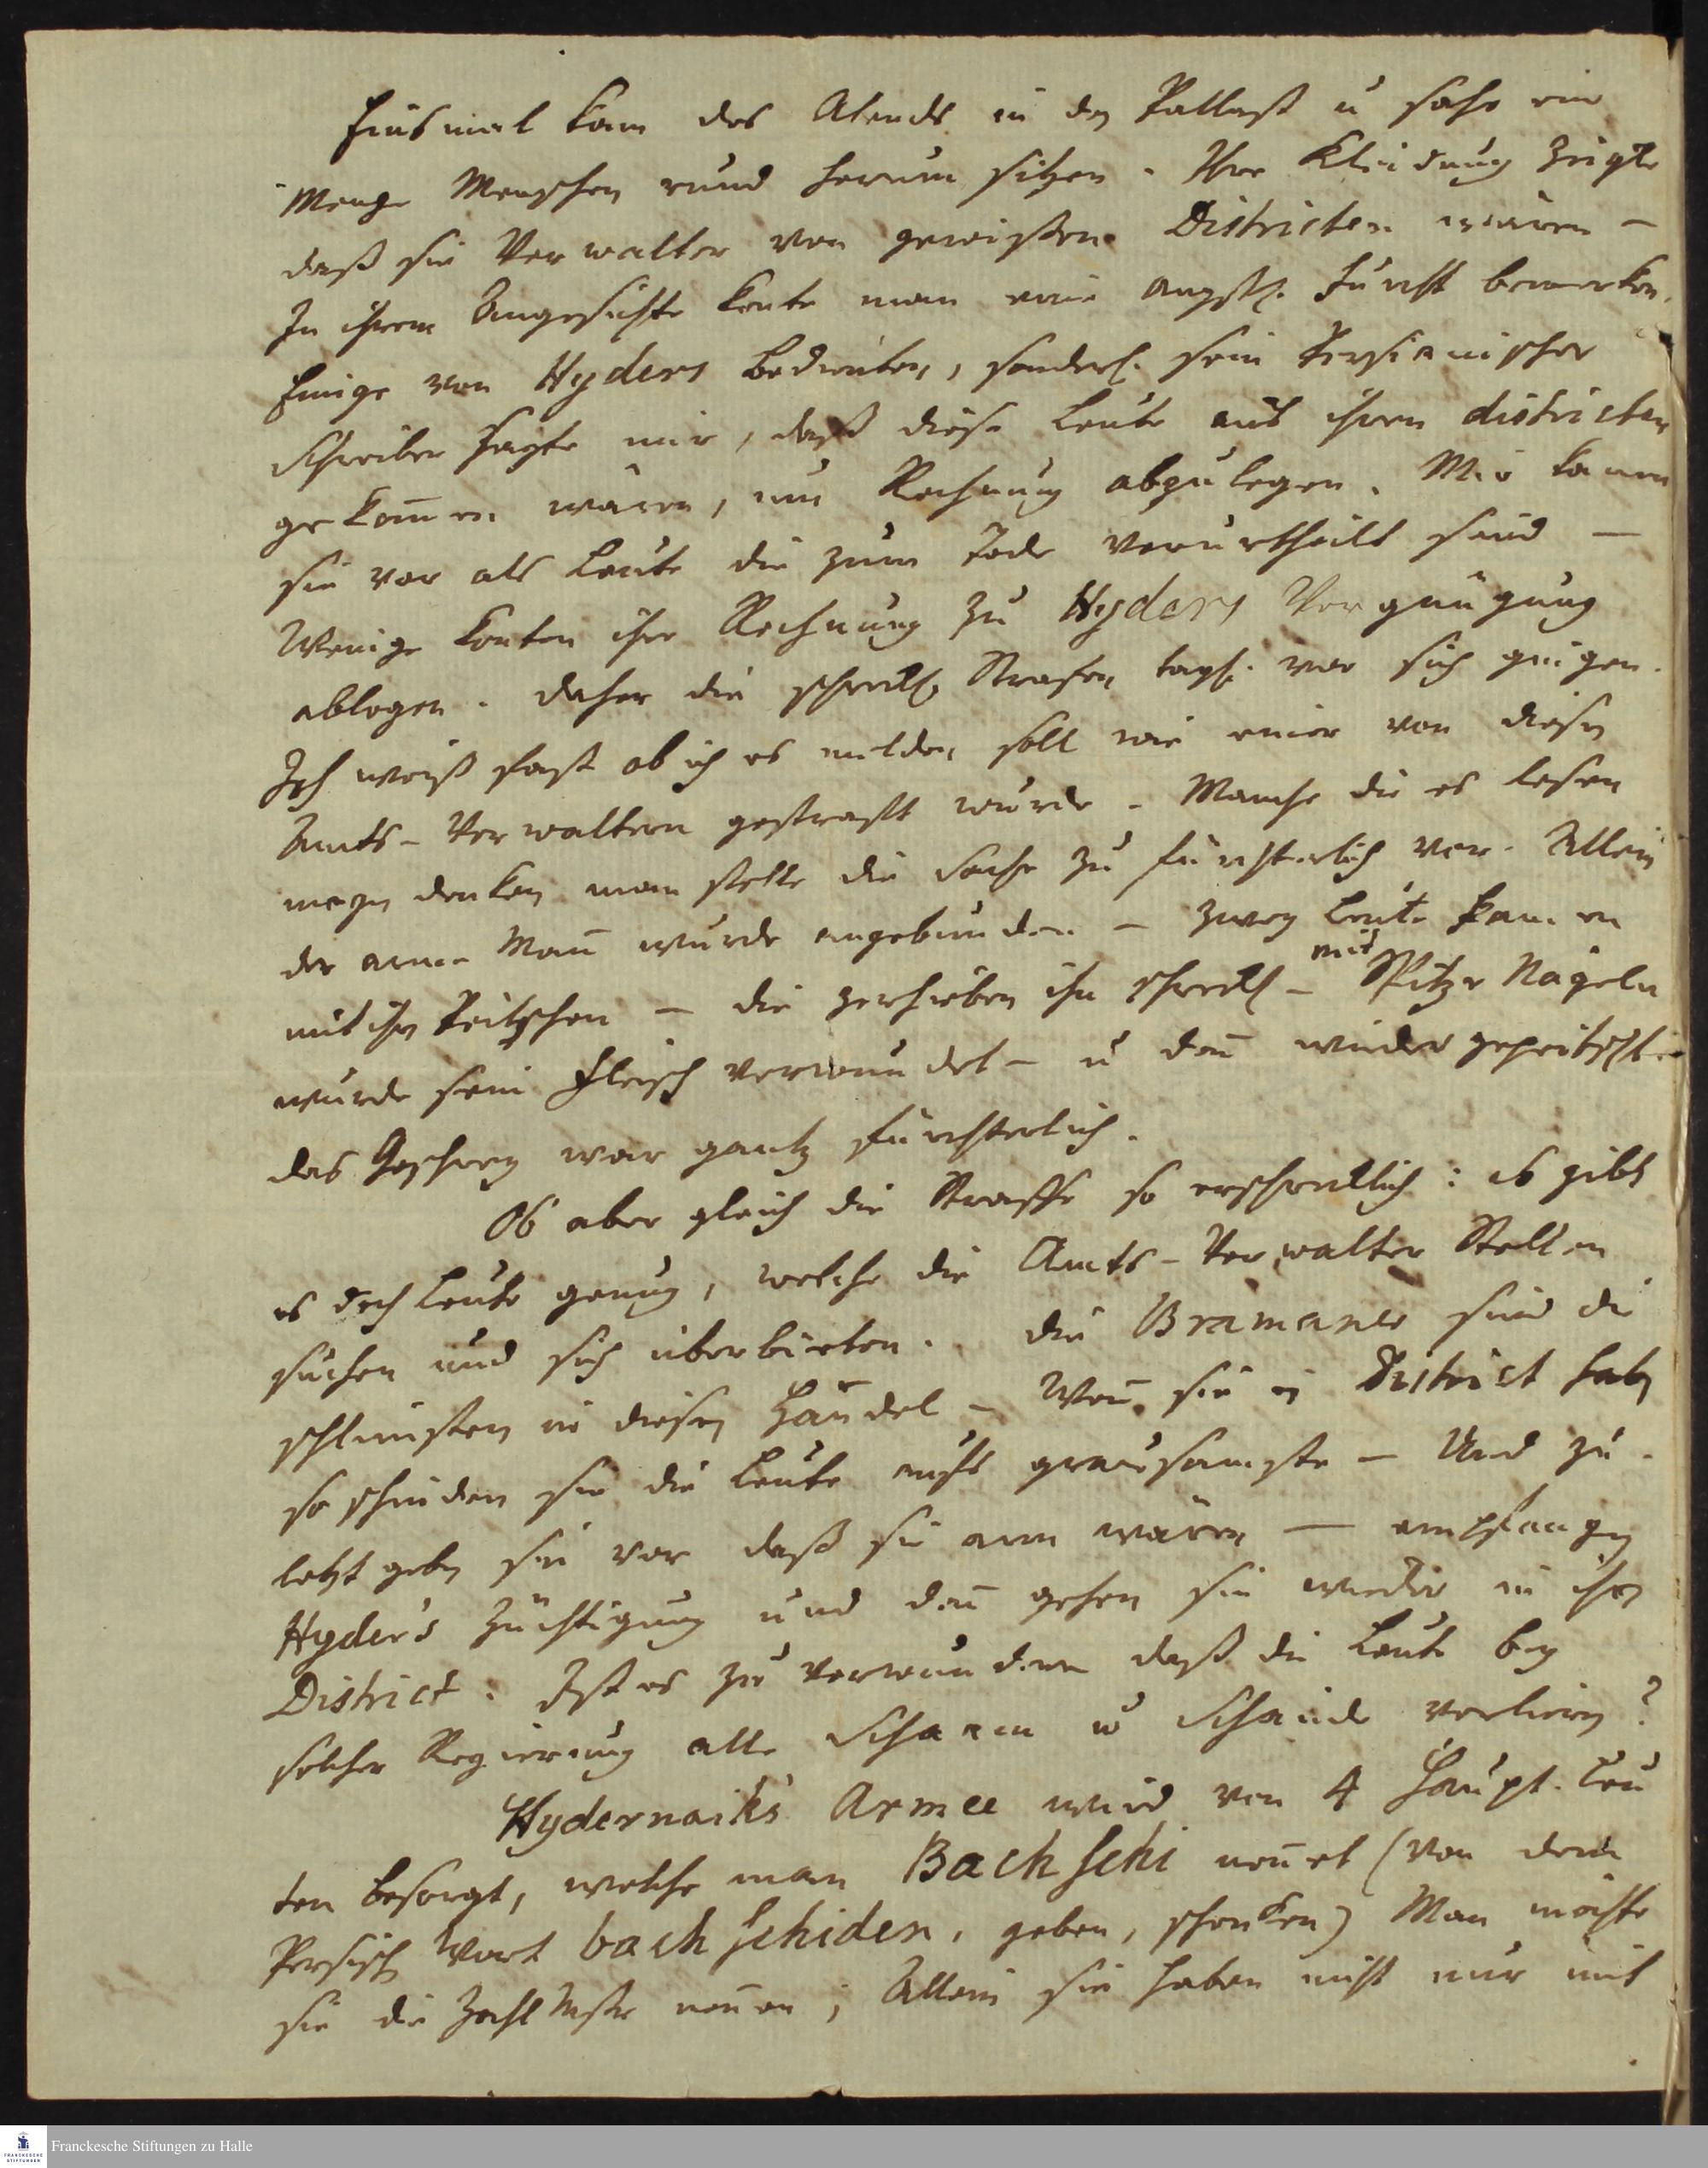 Einsmal kam des Abends in den Pallast u sahe eine
Menge Menschen rund herum sitzen. Ihre Kleidung zeigte
daß sie Verwalter von gewißen Districten wären –
In ihrem Angesichte konte man eine angstl. Furcht bemerken.
Einige von Hyders Bedienten, sonderl. sein Persianischer
Schreiber sagte mir, daß diese Leute aus ihren districten
gekom̄en wären, um Rechnung abzulegen. Mir kamen
sie vor als Leute die zum Tode verurtheilt sind –
Wenige konten ihre Rechnung zu Hyders Vergnügung
ablegen. daher die schreckl. Strafen tägl. vor sich gingen.
Ich weiß fast ob ich es melden soll wie einer von diesen
Amts-Verwaltern gestraft wurde – Manche die es lesen
mögen denken man stelle die Sache zu fürchterlich vor. Allein
der arme Man̄ wurde angebunden – zwey Leute kamen
mit ihren Peitschen – die zerhieben ihn schreckl – mit Spitze Nägeln
wurde sein Fleisch verwundet – u dan̄ wieder gepeitscht
das Geschrey war gantz fürchterlich.
Ob aber gleich die Straffe so erschrecklich: so gibt
es doch Leute genug, welche die Amts-Verwalter Stellen
suchen und sich überbieten. die Bramaner sind die
schlimsten in diesen Handel – Wen̄ sie ein District haben
so schinden sie die Leute aufs grausamste – Und zu-
letzt geben sie vor daß sie arm wären – empfangen
Hyder's Züchtigung und dan̄ gehen sie wieder in ihren
District. Ist es zu verwundern daß die Leute bey
solcher Regierung alle Schaam u Schande verlieren?
Hydernaik's Armee wird von 4 Haupt-Leu
ten besorgt, welche man Bachschi nen̄et (von dem
Persisch Wort bachschiden, geben, schenken) Man möchte
sie die Zahl Mstr nen̄en; Allein sie haben nicht nur mit
Franckesche Stiftungen zu Halle